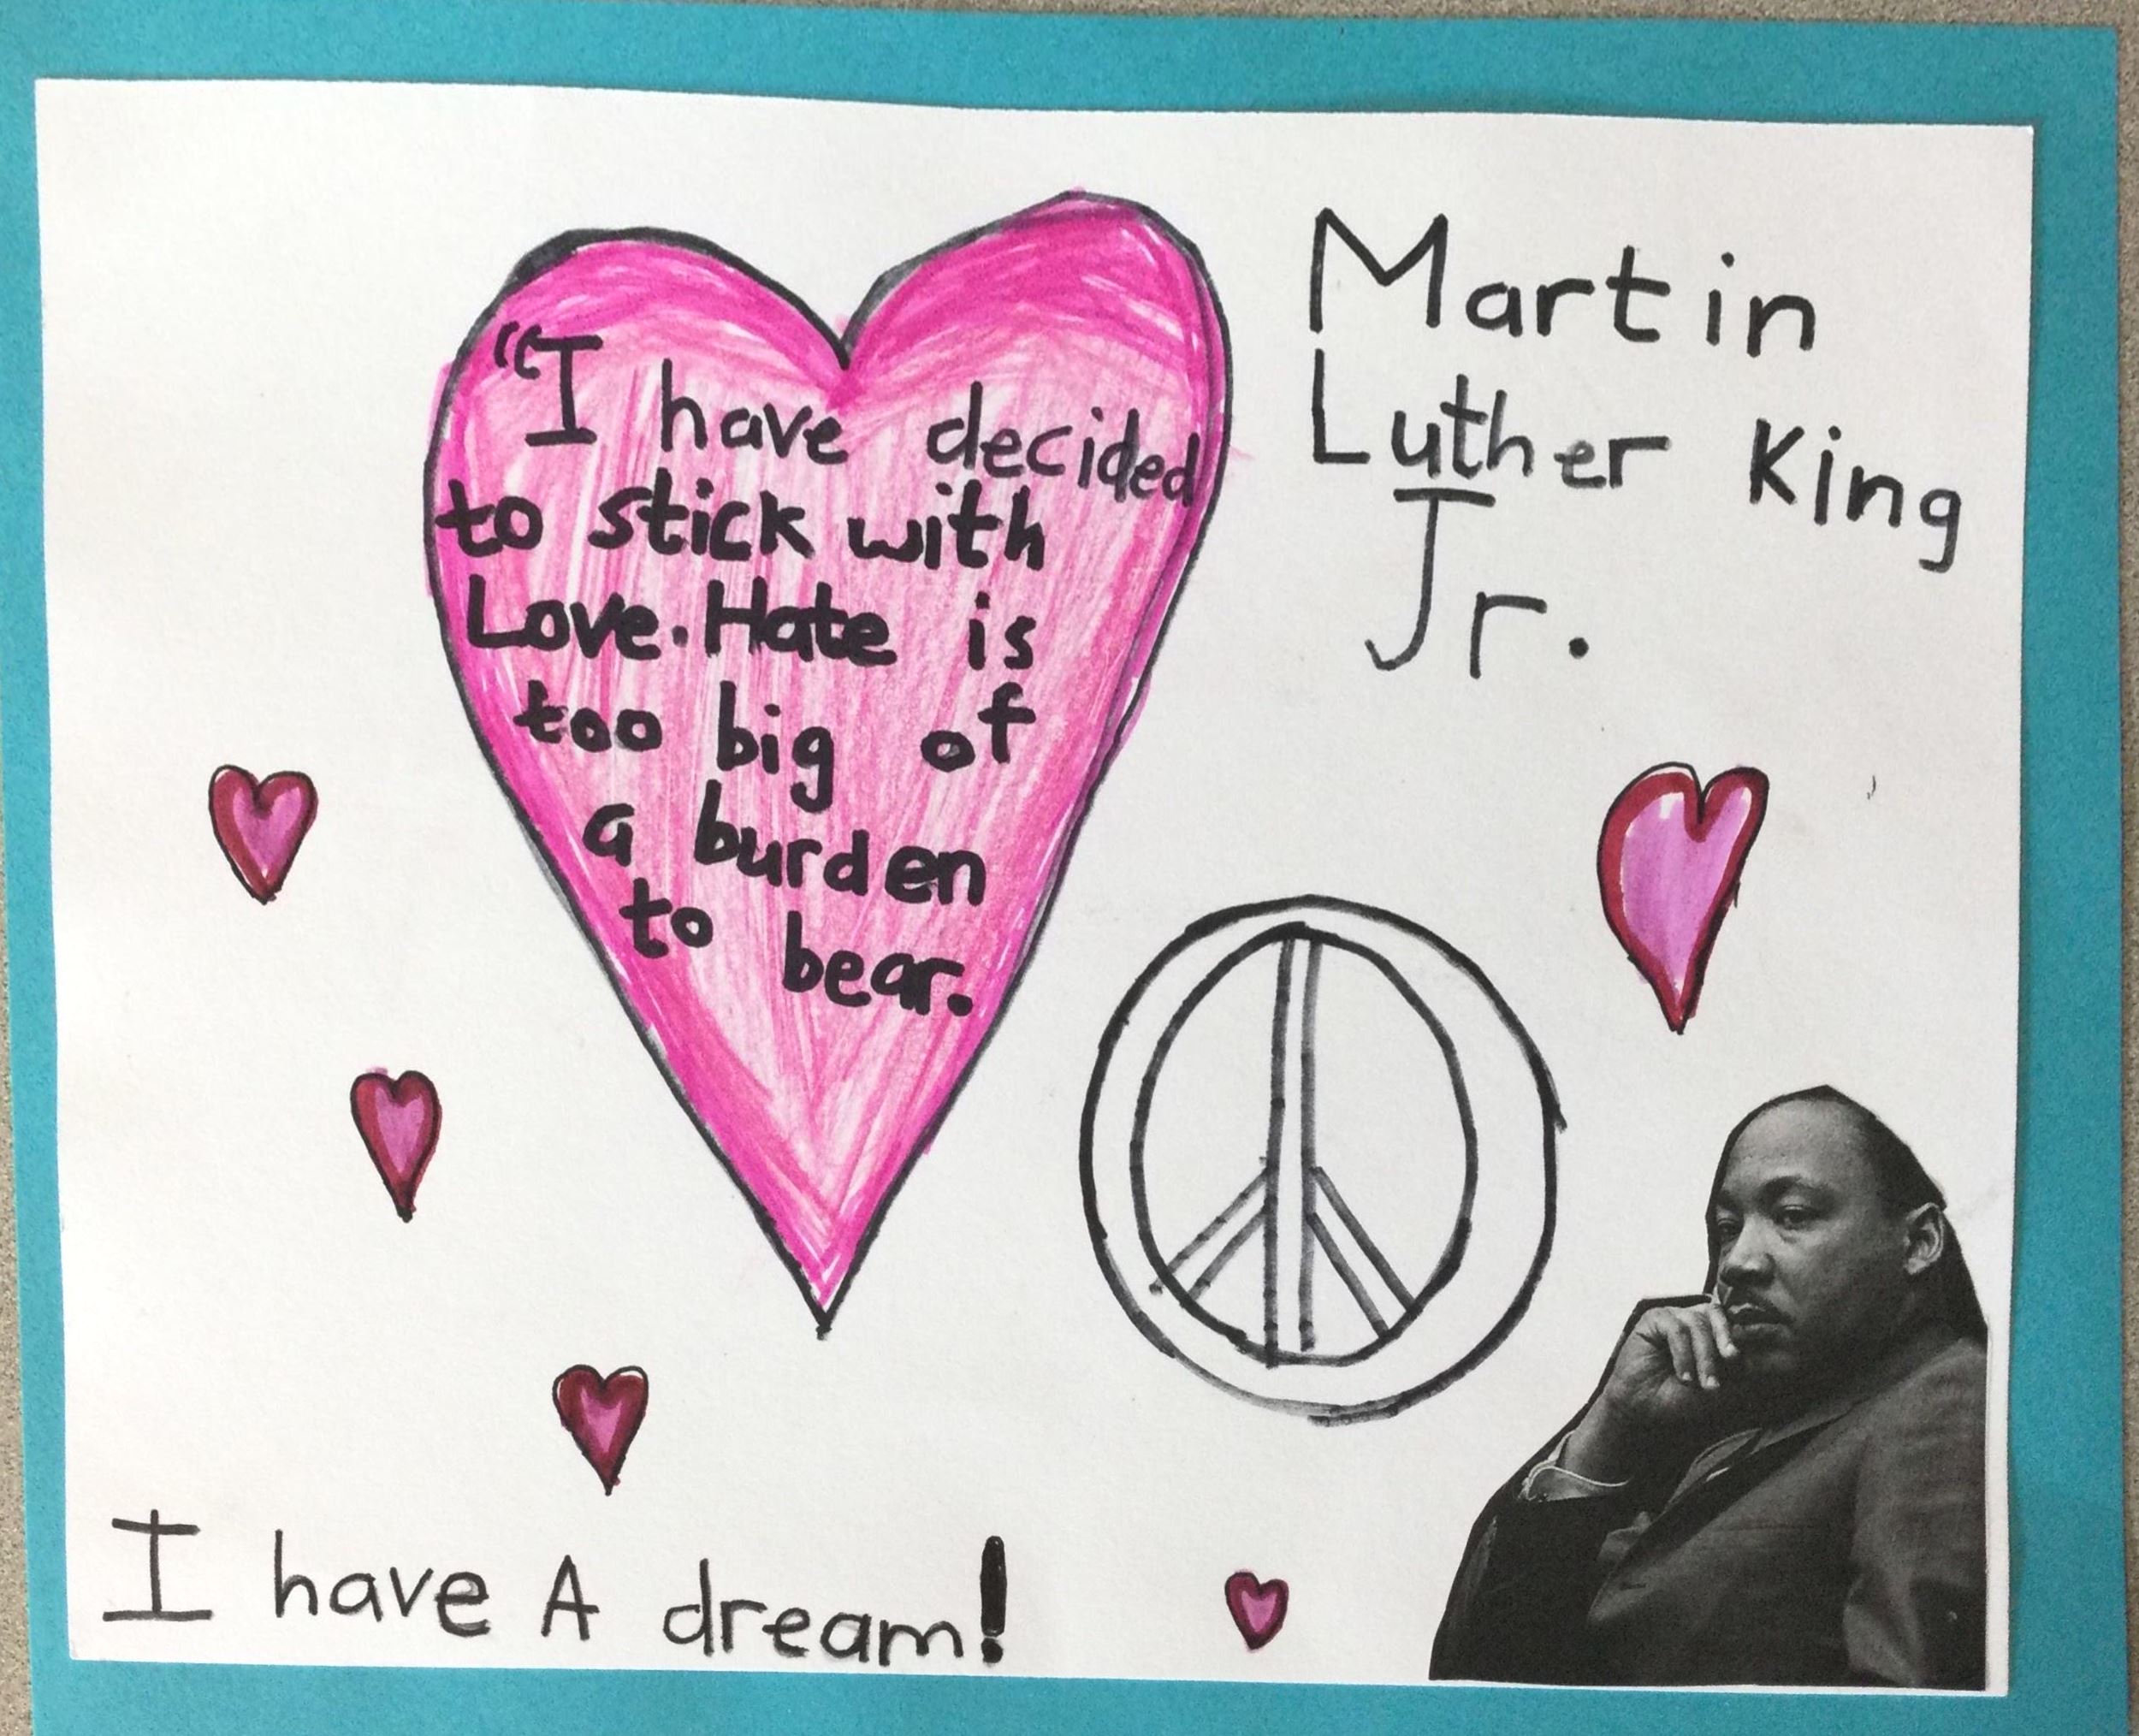 “I have decided
to stick with
Love. Hate is
too big of
a burden
to bear.
Martin
Luther King
Jr.
I have A dream!